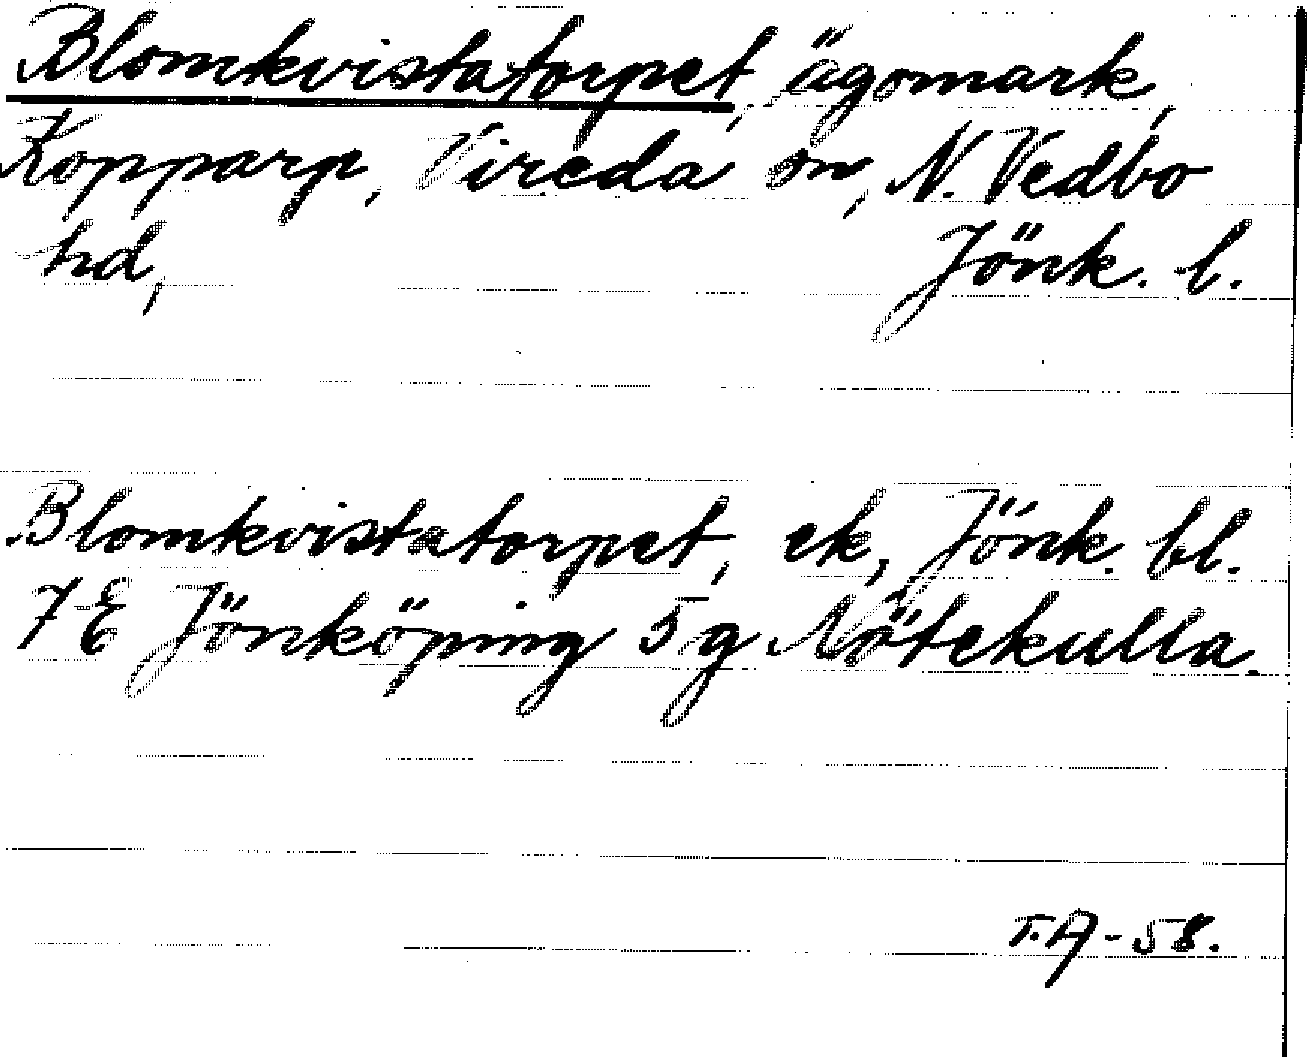 Blomkvistatorpet, ägomark,
Kopparp, Vireda sn, N. Vedbo
hd, Jönk. l.
Blomkvistatorpet, ek, Jönk. bl.
7 E Jönköping 5 g Nötekulla.
T.A - 58.